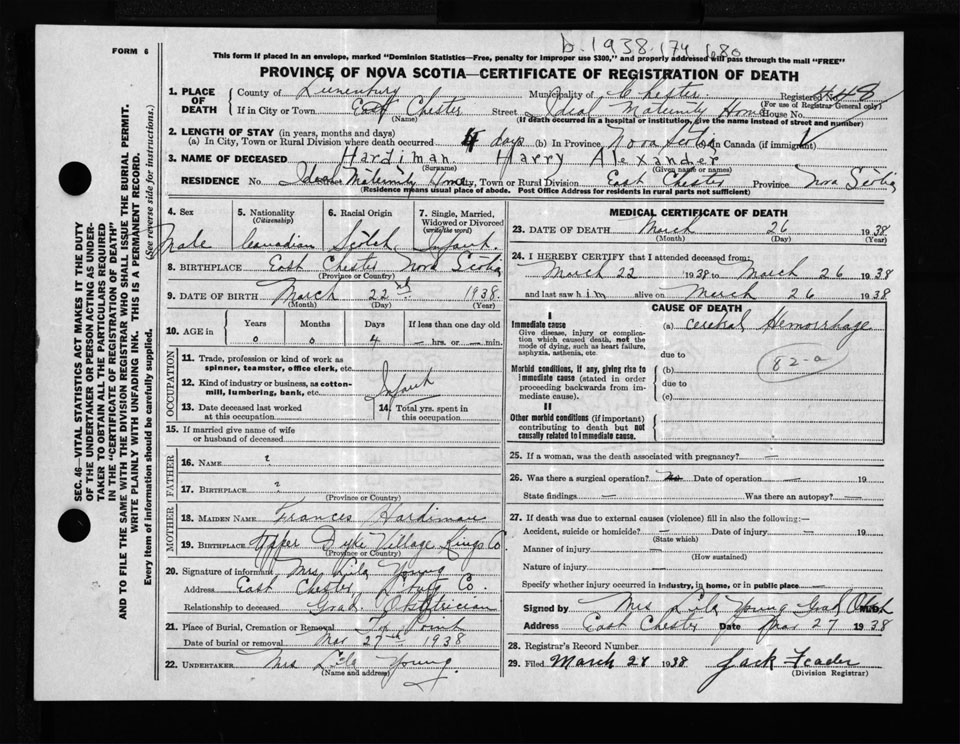 b. 1938-174 680
FORM 6
This form if placed in an envelope, marked "Dominion Statistics—Free, penalty for improper use $300," and properly addressed will pass through the mail "FREE"
PROVINCE OF NOVA SCOTIA—CERTIFICATE OF REGISTRATION OF DEATH
1. PLACE OF DEATH
County of Lunenburg Municipality of Chester Registered No. 48
(For use of Registrar General only)
If in City or Town East Chester Street Ideal Maternity Home House No.
(Name) (If death occurred in a hospital or institution, give the name instead of street and number)
2. LENGTH OF STAY (in years, months and days)
(a) In City, Town or Rural Division where death occurred 4 days (b) In Province Nova Scotia (c) In Canada (if immigrant)
3. NAME OF DECEASED Hardiman Harry Alexander
(Surname) (Given name or names)
RESIDENCE No. Ideal Maternity Home City, Town or Rural Division East Chester Province Nova Scotia
(Residence means usual place of abode. Post Office Address for residents in rural parts not sufficient)
4. Sex 5. Nationality 6. Racial Origin 7. Single, Married,
(Citizenship) Widowed or Divorced
(write the word)
Male Canadian Scotch Infant
8. BIRTHPLACE East Chester Nova Scotia
(Province or Country)
9. DATE OF BIRTH March 22nd 1938
(Month) (Day) (Year)
10. AGE in Years Months Days If less than one day old
0 0 4 — hrs. or — min.
OCCUPATION
11. Trade, profession or kind of work as
spinner, teamster, office clerk, etc.
12. Kind of industry or business, as cotton-
mill, lumbering, bank, etc. Infant
13. Date deceased last worked 14. Total yrs. spent in
at this occupation this occupation
15. If married give name of wife
or husband of deceased
FATHER
16. NAME ?
17. BIRTHPLACE ?
(Province or Country)
MOTHER
18. MAIDEN NAME Frances Hardiman
19. BIRTHPLACE Upper Dyke Village Kings Co.
(Province or Country)
20. Signature of informant Mrs Lila Young
Address East Chester Co.
Relationship to deceased Grad. Obstetrician
21. Place of Burial, Cremation or Removal Point
Date of burial or removal Mar 27th 1938
22. UNDERTAKER Mrs Lila Young
(Name and address)
MEDICAL CERTIFICATE OF DEATH
23. DATE OF DEATH March 26 1938
(Month) (Day) (Year)
24. I HEREBY CERTIFY that I attended deceased from:
March 22 1938 to March 26 1938
and last saw him alive on March 26 1938
CAUSE OF DEATH
I
Immediate cause (a) Cerebral Hemorrhage
Give disease, injury or complica-
tion which caused death, not the
mode of dying, such as heart failure,
asphyxia, asthenia, etc.
due to
82-a
Morbid conditions, if any, giving rise to (b)
immediate cause (stated in order due to
proceeding backwards from im-
mediate cause). (c)
II
Other morbid conditions (if important)
contributing to death but not
causally related to immediate cause.
25. If a woman, was the death associated with pregnancy? —
26. Was there a surgical operation? No Date of operation — 19
State findings — Was there an autopsy? —
27. If death was due to external causes (violence) fill in also the following:—
Accident, suicide or homicide? — Date of injury — 19
(State which)
Manner of injury —
(How sustained)
Nature of injury —
Specify whether injury occurred in industry, in home, or in public place —
Signed by Mrs Lila Young Grad Obst M.D.
Address East Chester Date Mar 27 1938
28. Registrar's Record Number
29. Filed March 28 1938 Jack Feader
(Division Registrar)
SEC. 46—VITAL STATISTICS ACT MAKES IT THE DUTY
OF THE UNDERTAKER OR PERSON ACTING AS UNDER-
TAKER TO OBTAIN ALL THE PARTICULARS REQUIRED
IN THE "CERTIFICATE OF REGISTRATION OF DEATH"
AND TO FILE THE SAME WITH THE DIVISION REGISTRAR WHO SHALL ISSUE THE BURIAL PERMIT.
WRITE PLAINLY WITH UNFADING INK. THIS IS A PERMANENT RECORD.
Every item of information should be carefully supplied. (See reverse side for instructions.)